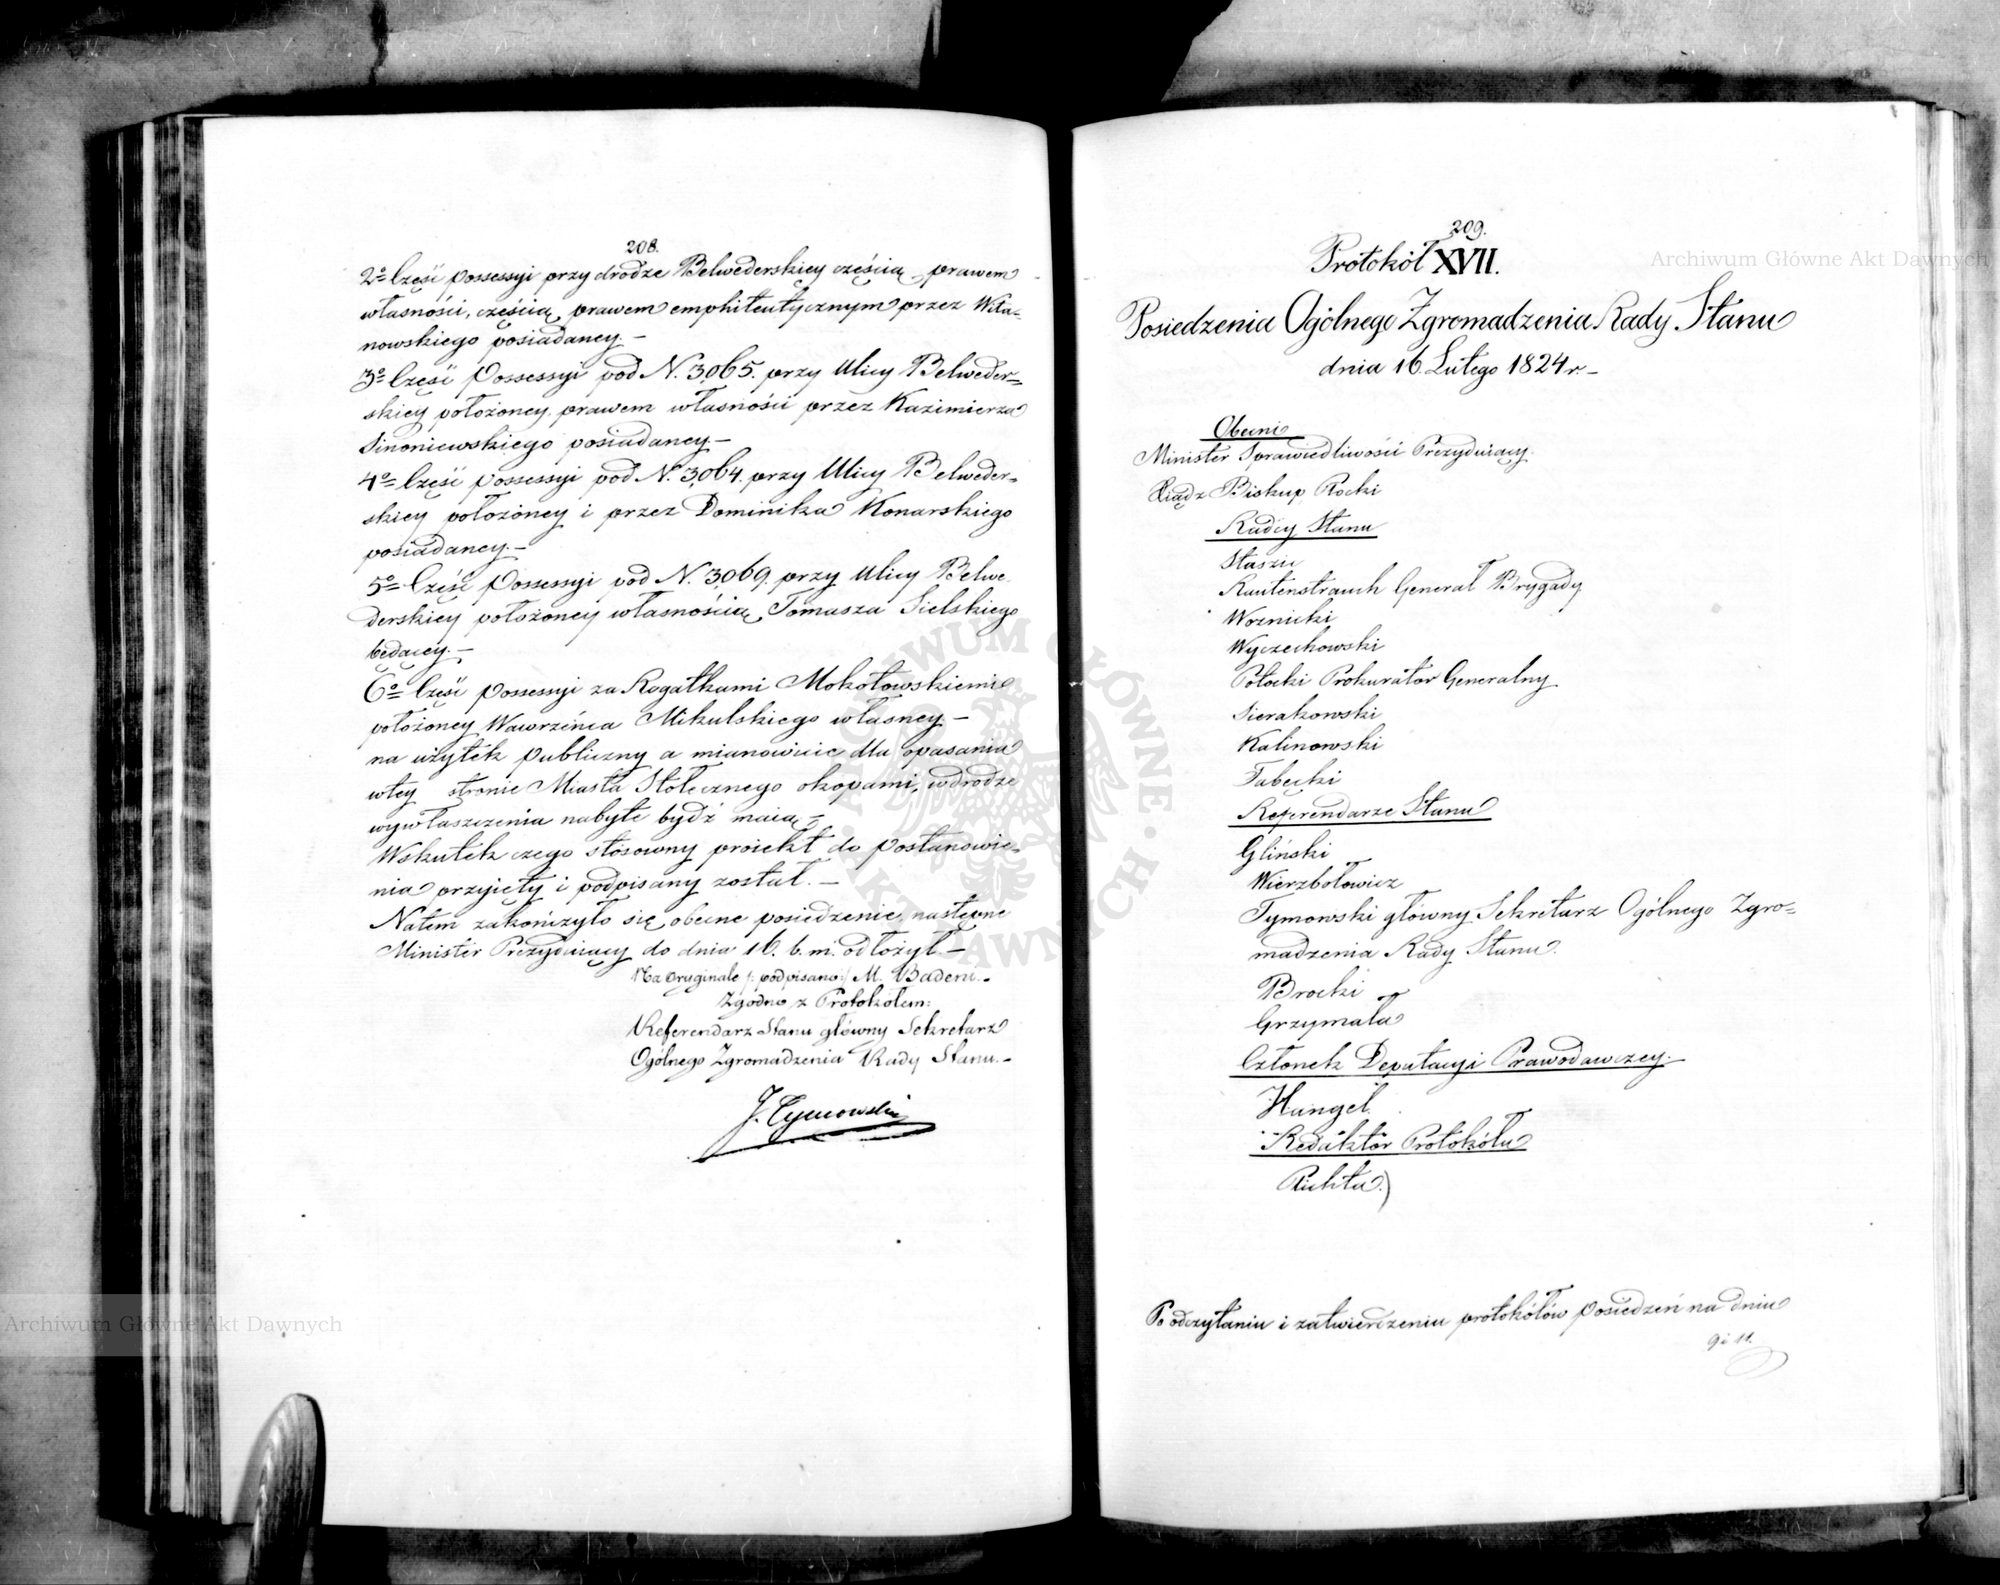 208.
2o Część possessyi przy drodze Belwederskiey częścią prawem
własności, częścią prawem emphiteutycznym przez Wła=
nowskiego posiadaney.–
3o Część Possessyi pod N. 3,065. przy Ulicy Belweder=
skiey położoney, prawem własności przez Kazimierza
posiadaney–
4o Część possessyi pod N. 3,064. przy Ulicy Belweder=
skiey położoney i przez Dominika Konarskiego
posiadaney.–
5o Część Possessyi pod N. 3,069. przy Ulicy Belwe
derskiey położoney własnością Tomasza Sielskiego
będącey.–
6o Część possessyi za Rogatkami Mokotowskiemi
położoney Wawrzeńca Mikulskiego własney.–
na użytek publiczny a mianowicie dla opasania
w tey stronie Miasta Stołecznego okopami, w drodze
wywłaszczenia nabyte bydź maią–
Wskutek czego stosowny proiekt do postanowie=
nia przyięty i podpisany został.–
Natem zakończyło się obecne posiedzenie, następne
Minister Prezyduiący do dnia 16. b. m. odłożył.–
Na oryginale /: podpisano:/ M. Badeni.–
Zgodno z Protokółem:
Referendarz Stanu główny Sekretarz
Ogólnego Zgromadzenia Rady Stanu.–
J. Tymowski
209.
Protokół XVII.
Posiedzenia Ogólnego Zgromadzenia Rady Stanu
dnia 16. Lutego 1824 r.–
Obecni
Minister Sprawiedliwości Prezyduiący.
Xiądz Biskup Płocki
Radcy Stanu
Staszic
Rautenstrauch Generał Brygady
Woznicki
Wyczechowski
Potocki Prokurator Generalny
Sierakowski
Kalinowski
Fabęcki
Referendarze Stanu
Gliński
Wierzbołowicz
Tymowski główny Sekretarz Ogólnego Zgro=
madzenia Rady Stanu.
Brocki
Grzymała
Członek Deputacyi Prawodawczey.
Hangel.
Redaktor Protokółu
Po odczytaniu i zatwierdzeniu protokółów posiedzeń na dniu
9 i 11.
Archiwum Główne Akt Dawnych
Archiwum Główne Akt Dawnych
ARCHIWUM GŁÓWNE AKT DAWNYCH